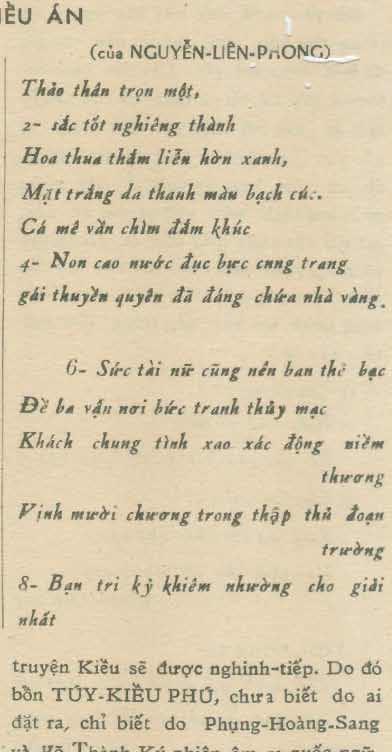 IỀU ÁN
(của NGUYỄN-LIÊN-PHONG)
Thảo thân trọn một,
2- sắc tốt nghiêng thành
Hoa thua thắm liễu hờn xanh,
Mặt trắng da thanh màu bạch cúc.
Cá mê vằn chìm đắm khúc
4- Non cao nước đục bực cnng trang
gái thuyền quyên đã đáng chứa nhà vàng.
6- Sức tài nữ cũng nên ban thẻ bạc
Đề ba vận nơi bức tranh thủy mạc
Khách chung tình xao xác động niềm
thương
Vịnh mười chương trong thập thủ đoạn
trường
8- Bạn tri kỷ khiêm nhường cho giải
nhất
truyện Kiều sẽ được nghinh-tiếp. Do đó
bồn TÚY-KIỀU PHÚ, chưa biết do ai
đặt ra, chỉ biết do Phụng-Hoàng-Sang
và Thành Ký phiên âm ra quốc